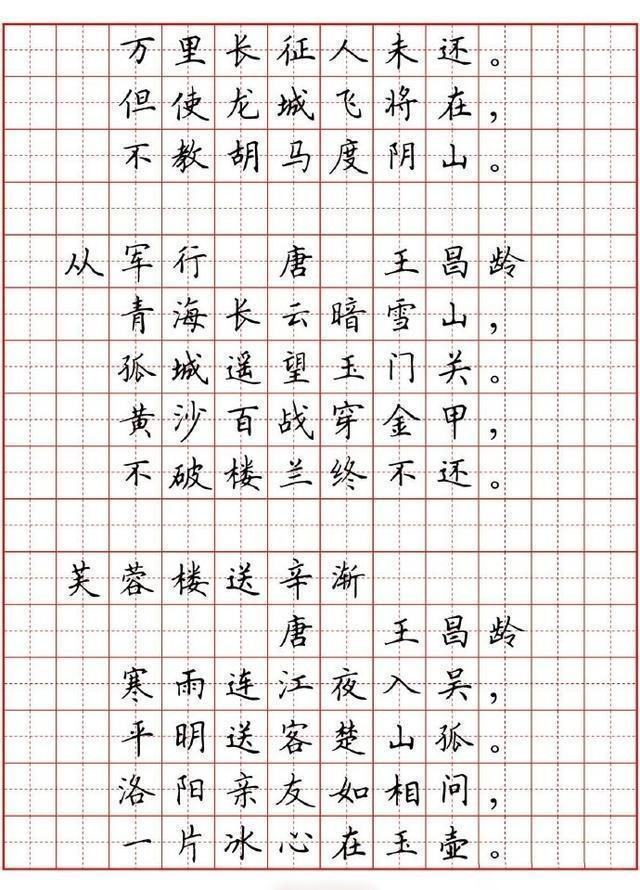 万里长征人未还。
但使龙城飞将在，
不教胡马度阴山。
从军行 唐 王昌龄
青海长云暗雪山，
孤城遥望玉门关。
黄沙百战穿金甲，
不破楼兰终不还。
芙蓉楼送辛渐
唐 王昌龄
寒雨连江夜入吴，
平明送客楚山孤。
洛阳亲友如相问，
一片冰心在玉壶。